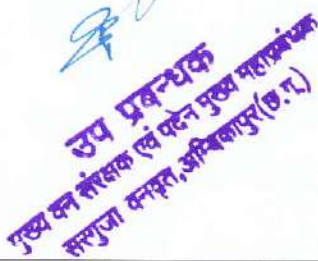 उप प्रबन्धक
मुख्य वन संरक्षक एवं पदेन मुख्य महाप्रबंधक
सरगुजा वनवृत्त,अम्बिकापुर(छ.ग.)